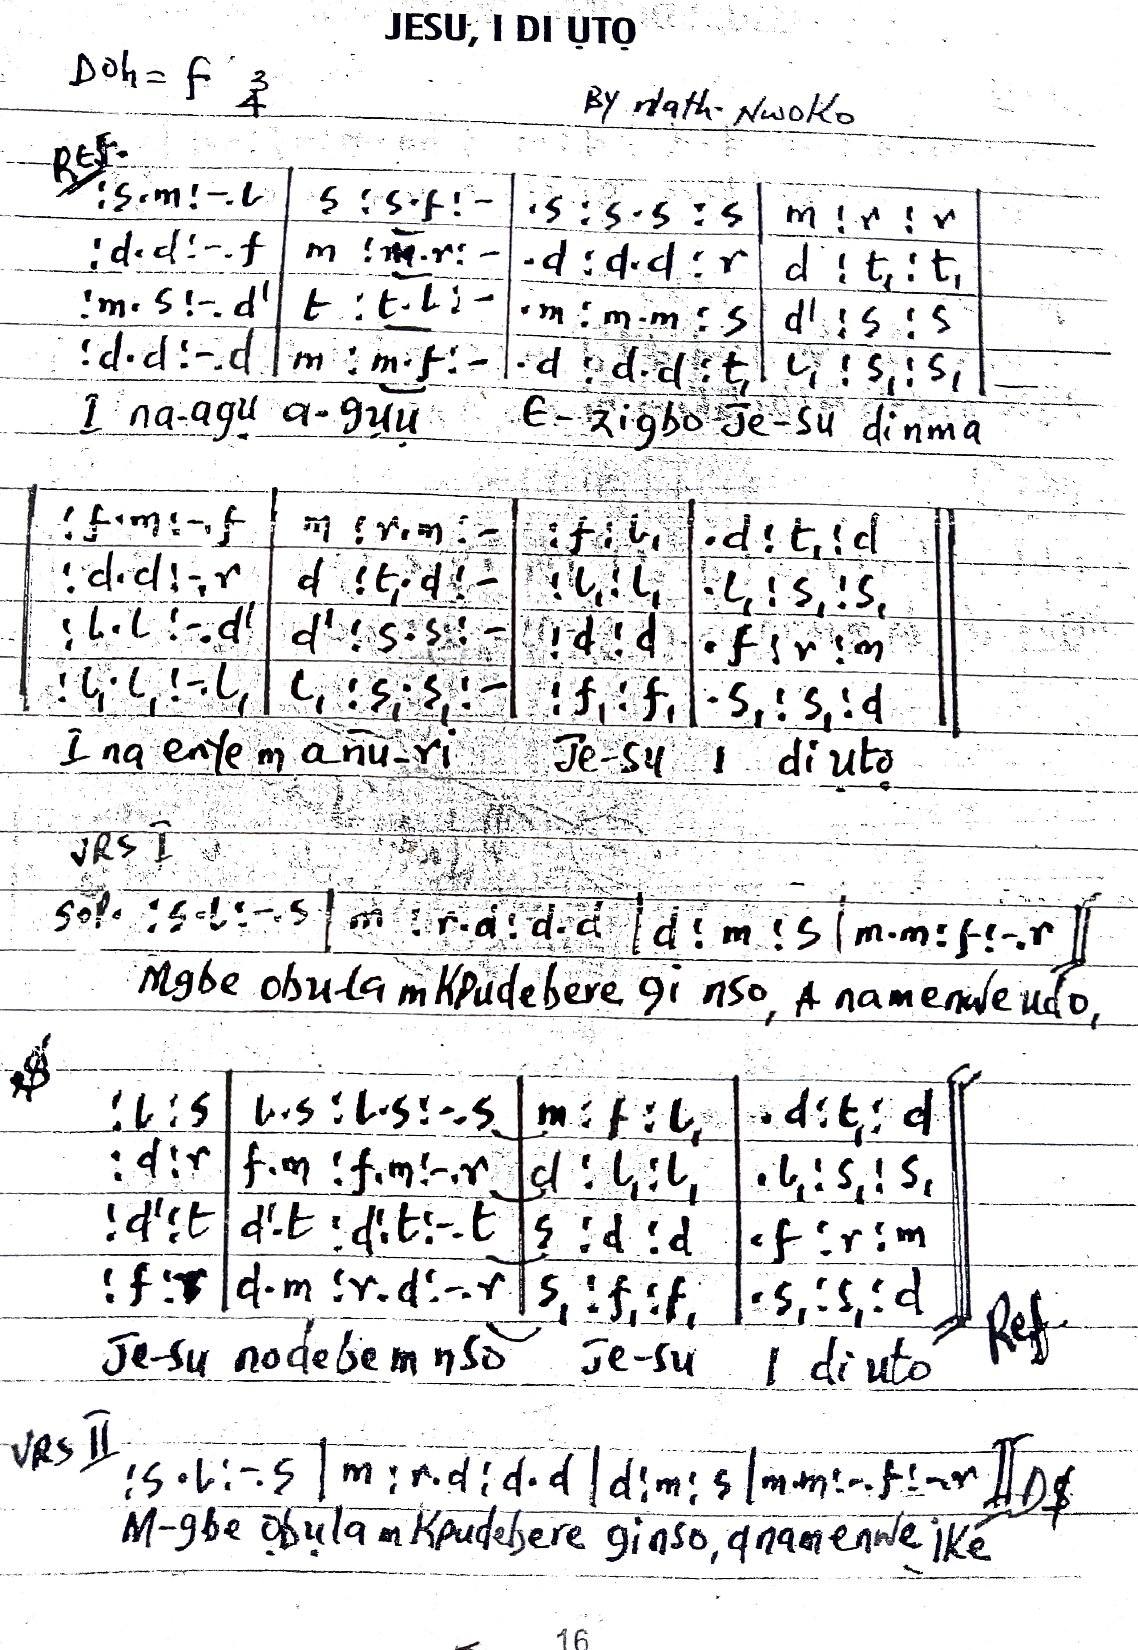 JESU, I DI ỤTỌ
Doh = f 3/4
BY Nath. Nwoko
Ref.
:s.m:-.l | s :s.f:- | .s :s.s :s | m :r :r |
:d.d:-.f | m :m.r:- | .d :d.d :r | d :t₁ :t₁
:m.s:-.d' | t :t.l:- | .m :m.m :s | d' :s :s
:d.d:-.d | m :m.f:- | .d :d.d :t₁ | l₁ :s₁ :s₁
I na-agụ a-gụụ E-zigbo Je-su dinma
| :f.m:-.f | m :r.m:- | :f :l₁ | .d :t₁ :d ||
:d.d:-.r | d :t₁.d:- | :l₁ :l₁ | .l₁ :s₁ :s₁
:l.l:-.d' | d' :s.s:- | :d :d | .f :r :m
:l₁.l₁:-.l₁ | l₁ :s₁.s₁:- | :f₁ :f₁ | .s₁ :s₁ :d
I na enye m añu-ri Je-su I di ụtọ
VRS I
Sol. :s.l:-.s | m :r.d:d.d | d :m :s | m.m:f:-.r ||
Mgbe obu-la m kpudebere gi nso, A namenwe udo,
:l :s | l.s :l.s:-.s | m :f :l₁ | .d :t₁ :d ||
:d :r | f.m :f.m:-.r | d :l₁ :l₁ | .l₁ :s₁ :s₁
:d' :t | d'.t :d'.t:-.t | s :d :d | .f :r :m
:f :r | d.m :r.d:-.r | s₁ :f₁ :f₁ | .s₁ :s₁ :d
Ref.
Je-su nodebe m nso Je-su I di uto
VRS II
:s.l:-.s | m :r.d:d.d | d:m:s | m.m:-.f:-.r || D$
M-gbe ọbụla m kpudebere ginso, anamenwe ike
16